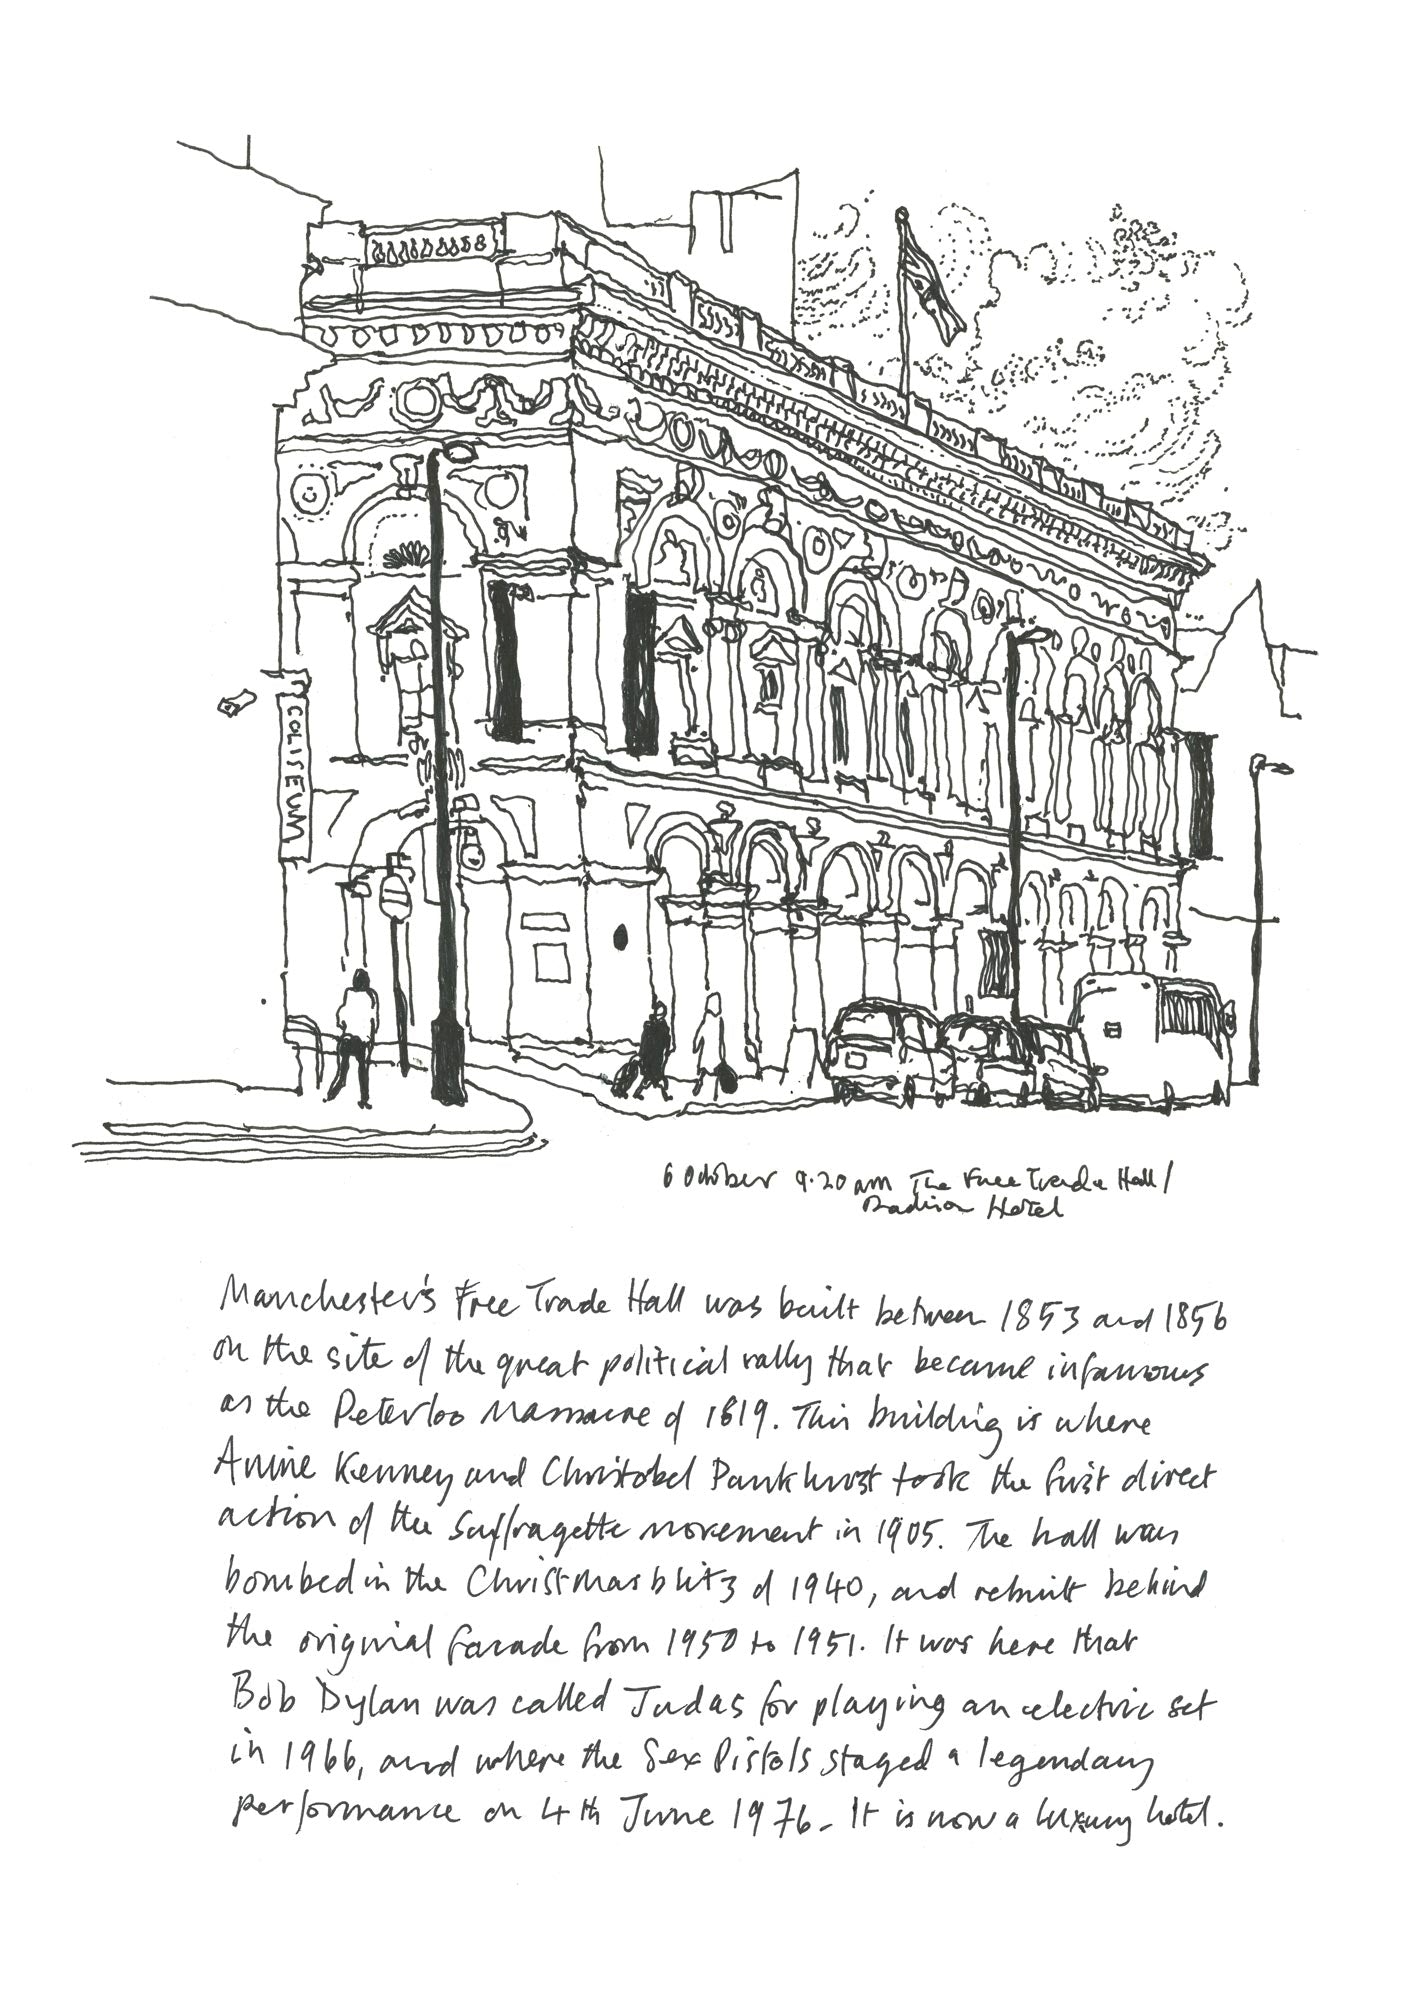 COLISEUM
6 October 9.20am The Free Trade Hall/
Radison Hotel
Manchester's Free Trade Hall was built between 1853 and 1856
on the site of the great political rally that became infamous
as the Peterloo Massacre of 1819. This building is where
Annie Kenney and Christobel Pankhurst took the first direct
action of the Suffragette movement in 1905. The hall was
bombed in the Christmas blitz of 1940, and rebuilt behind
the original facade from 1950 to 1951. It was here that
Bob Dylan was called Judas for playing an electric set
in 1966, and where the Sex Pistols staged a legendary
performance on 4th June 1976. It is now a luxury hotel.